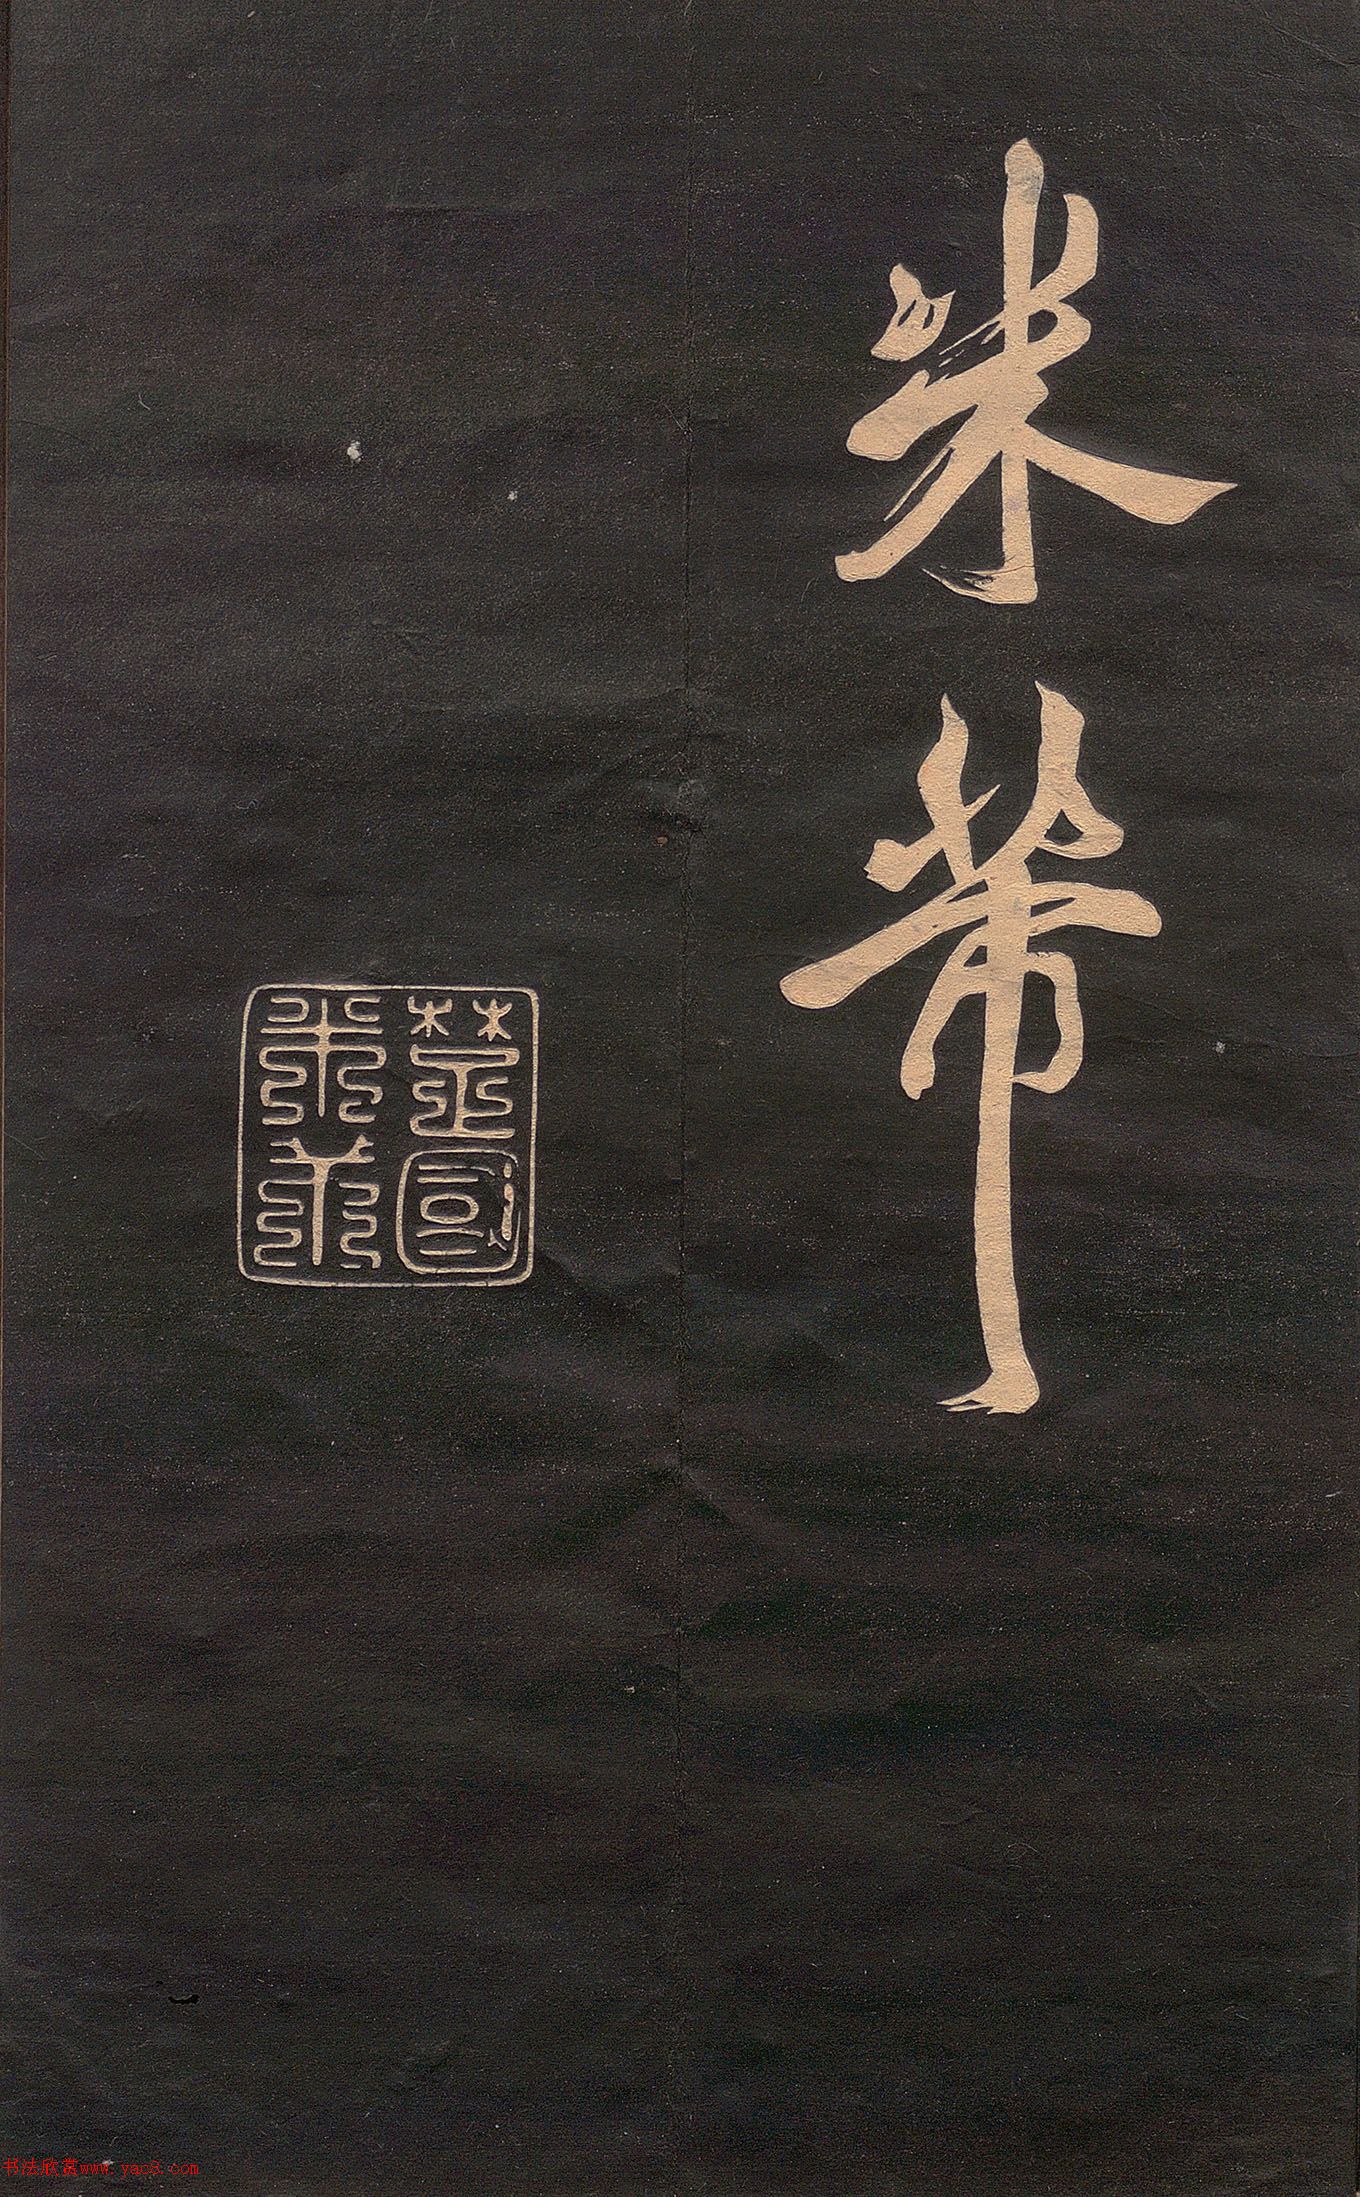 米芾
楚國米芾
书法欣赏www.yac8.com